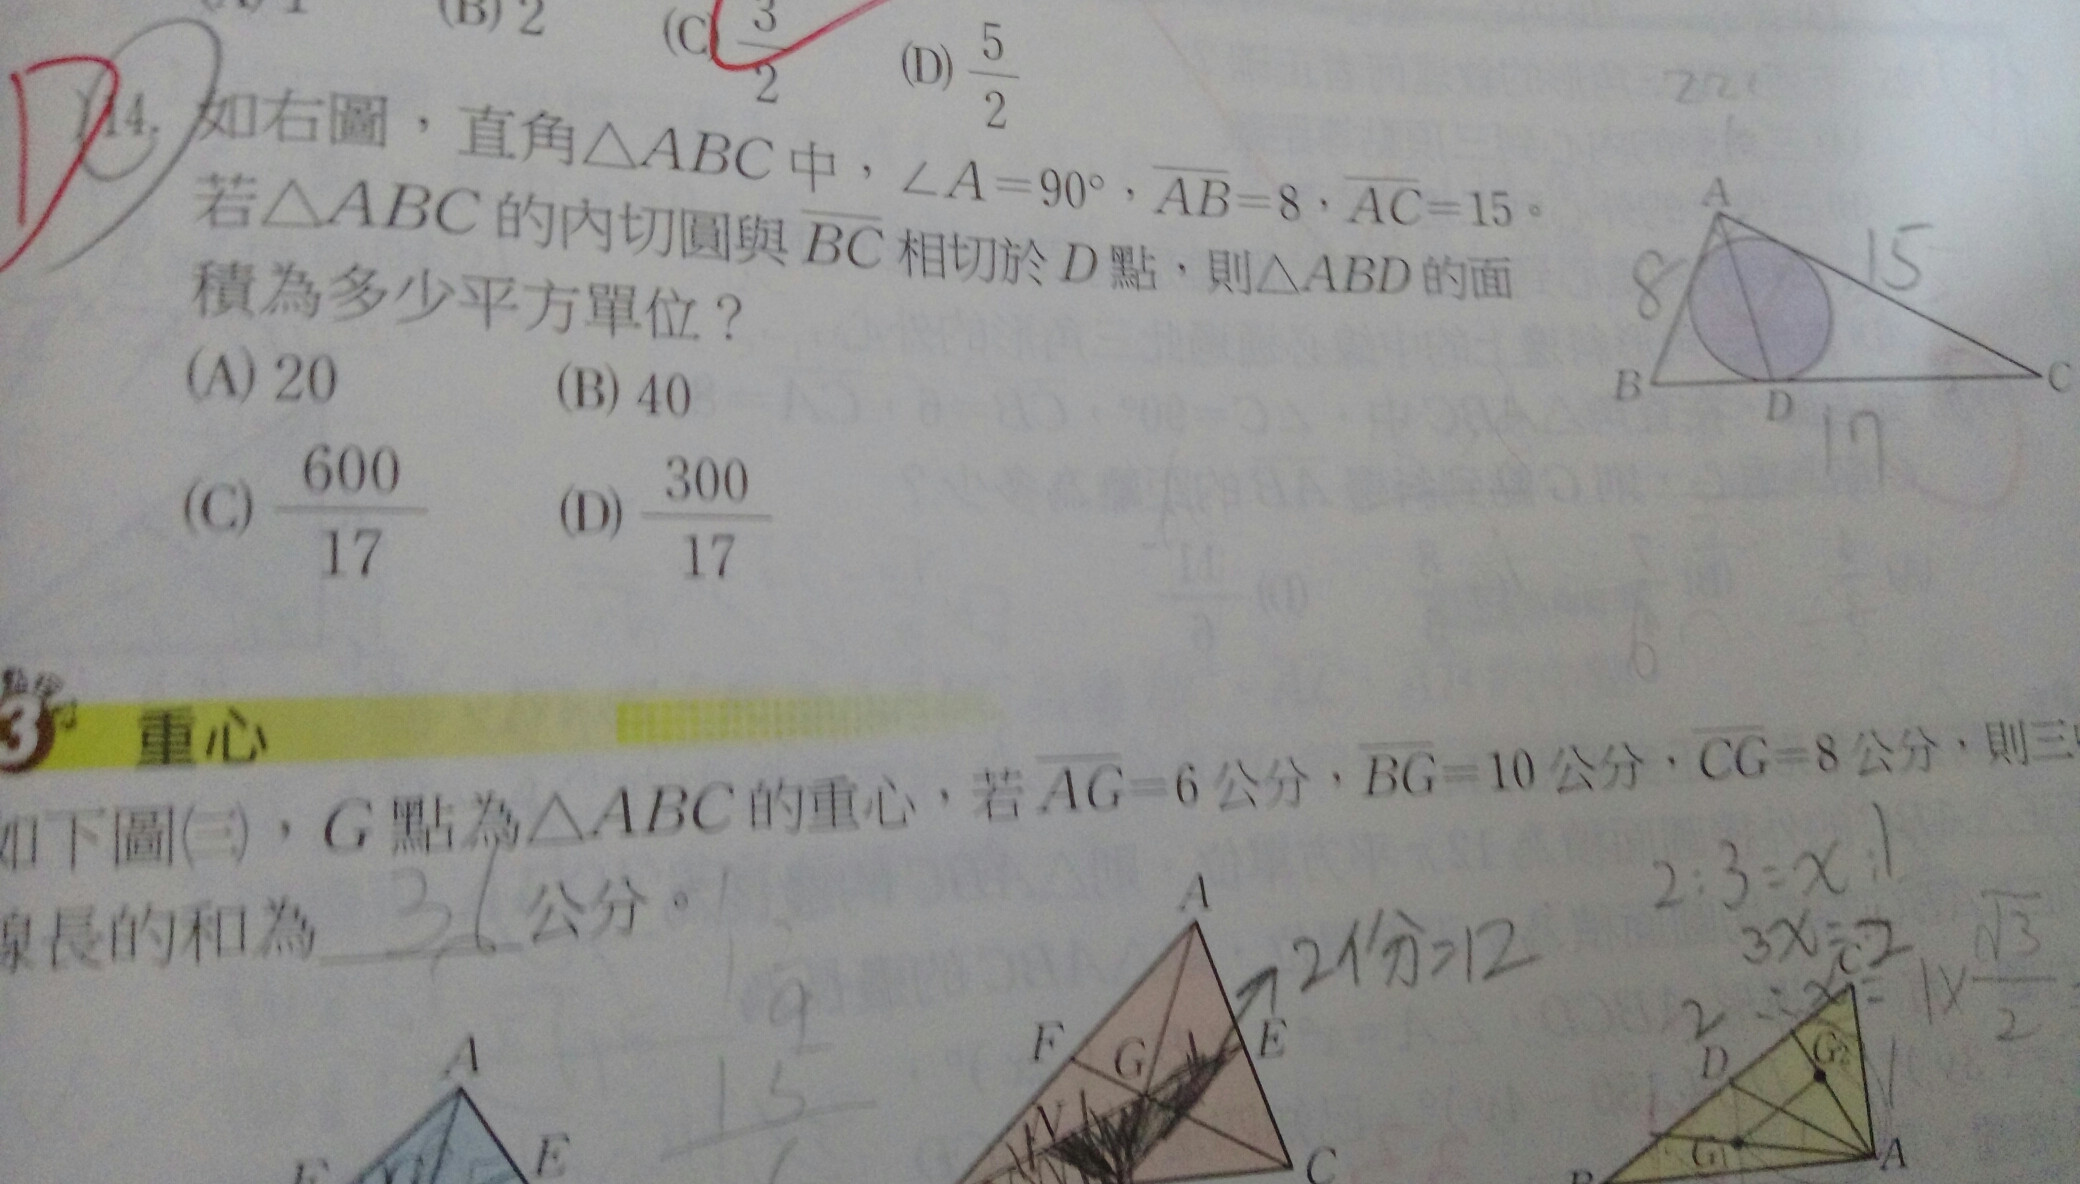 (B) 2 (C) 3/2 (D) 5/2
D
14. 如右圖，直角△ABC中，∠A=90°，AB=8，AC=15。
若△ABC的內切圓與BC相切於D點，則△ABD的面
積為多少平方單位？
(A) 20 (B) 40
(C) 600/17 (D) 300/17
A
8
15
B
D
C
17
3 重心
如下圖(三)，G點為△ABC的重心，若AG=6公分，BG=10公分，CG=8公分，則三
線長的和為 36 公分。
2:3=x:1
3x=2
1×√3/2
A
2份=12
F
G
E
C
A
E
9
15
D
G2
G1
A
B